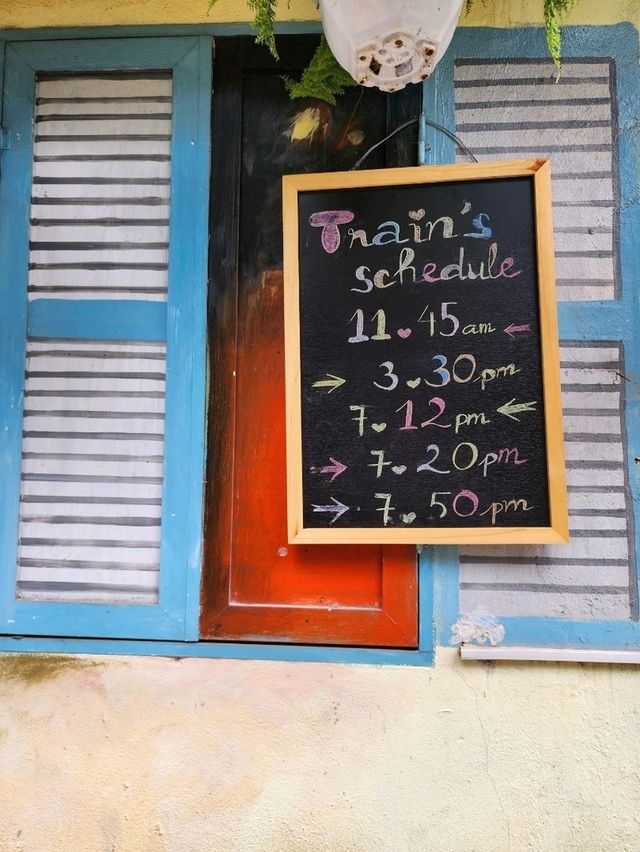 Train's
schedule
11.45am ←
→ 3.30pm
7.12pm ←
→ 7.20pm
→ 7.50pm